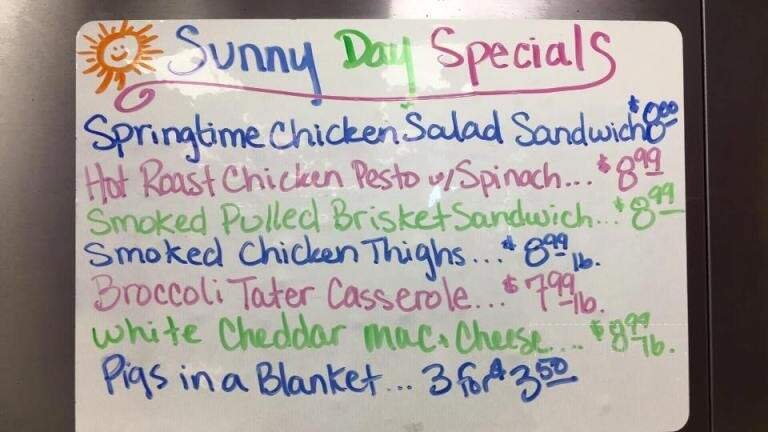 Sunny Day Specials
Springtime Chicken Salad Sandwich $8.00
Hot Roast Chicken Pesto w/Spinach... $8.99
Smoked Pulled Brisket Sandwich... $8.99
Smoked Chicken Thighs... $8.99 lb.
Broccoli Tater Casserole... $7.99 lb.
White Cheddar Mac & Cheese.... $8.99 lb.
Pigs in a Blanket... 3 for $3.50